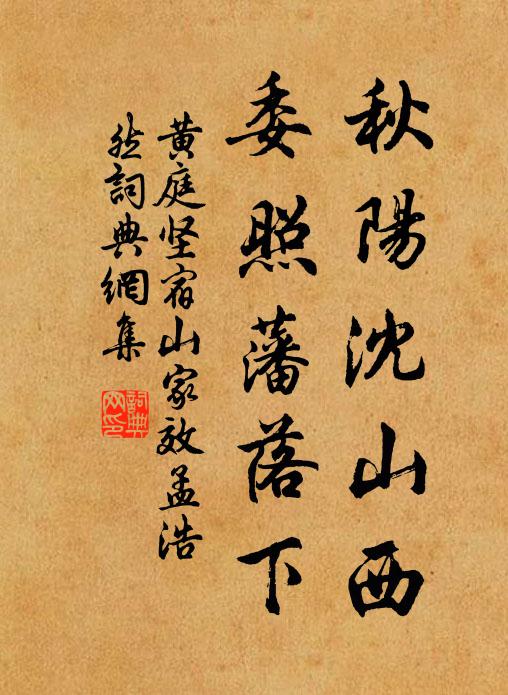 秋陽沈山西
委照藩落下
黄庭坚宿山家效孟浩
然詞典網集
詞典
网印